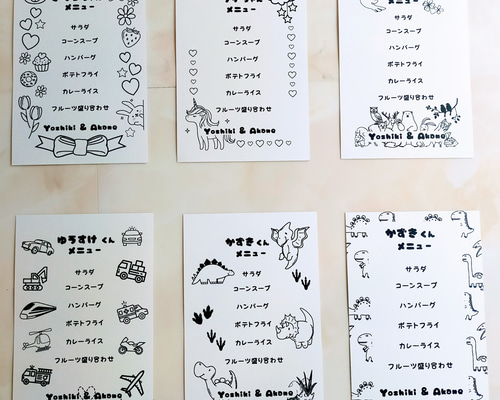 メニュー
サラダ
コーンスープ
ハンバーグ
ポテトフライ
カレーライス
フルーツ盛り合わせ
Yoshiki & Akono
メニュー
サラダ
コーンスープ
ハンバーグ
ポテトフライ
カレーライス
フルーツ盛り合わせ
Yoshiki & Akono
メニュー
サラダ
コーンスープ
ハンバーグ
ポテトフライ
カレーライス
フルーツ盛り合わせ
Yoshiki & Akono
ゆうすけ くん
メニュー
サラダ
コーンスープ
ハンバーグ
ポテトフライ
カレーライス
フルーツ盛り合わせ
Yoshiki & Akono
かずき くん
メニュー
サラダ
コーンスープ
ハンバーグ
ポテトフライ
カレーライス
フルーツ盛り合わせ
Yoshiki & Akono
かずき くん
メニュー
サラダ
コーンスープ
ハンバーグ
ポテトフライ
カレーライス
フルーツ盛り合わせ
Yoshiki & Akono